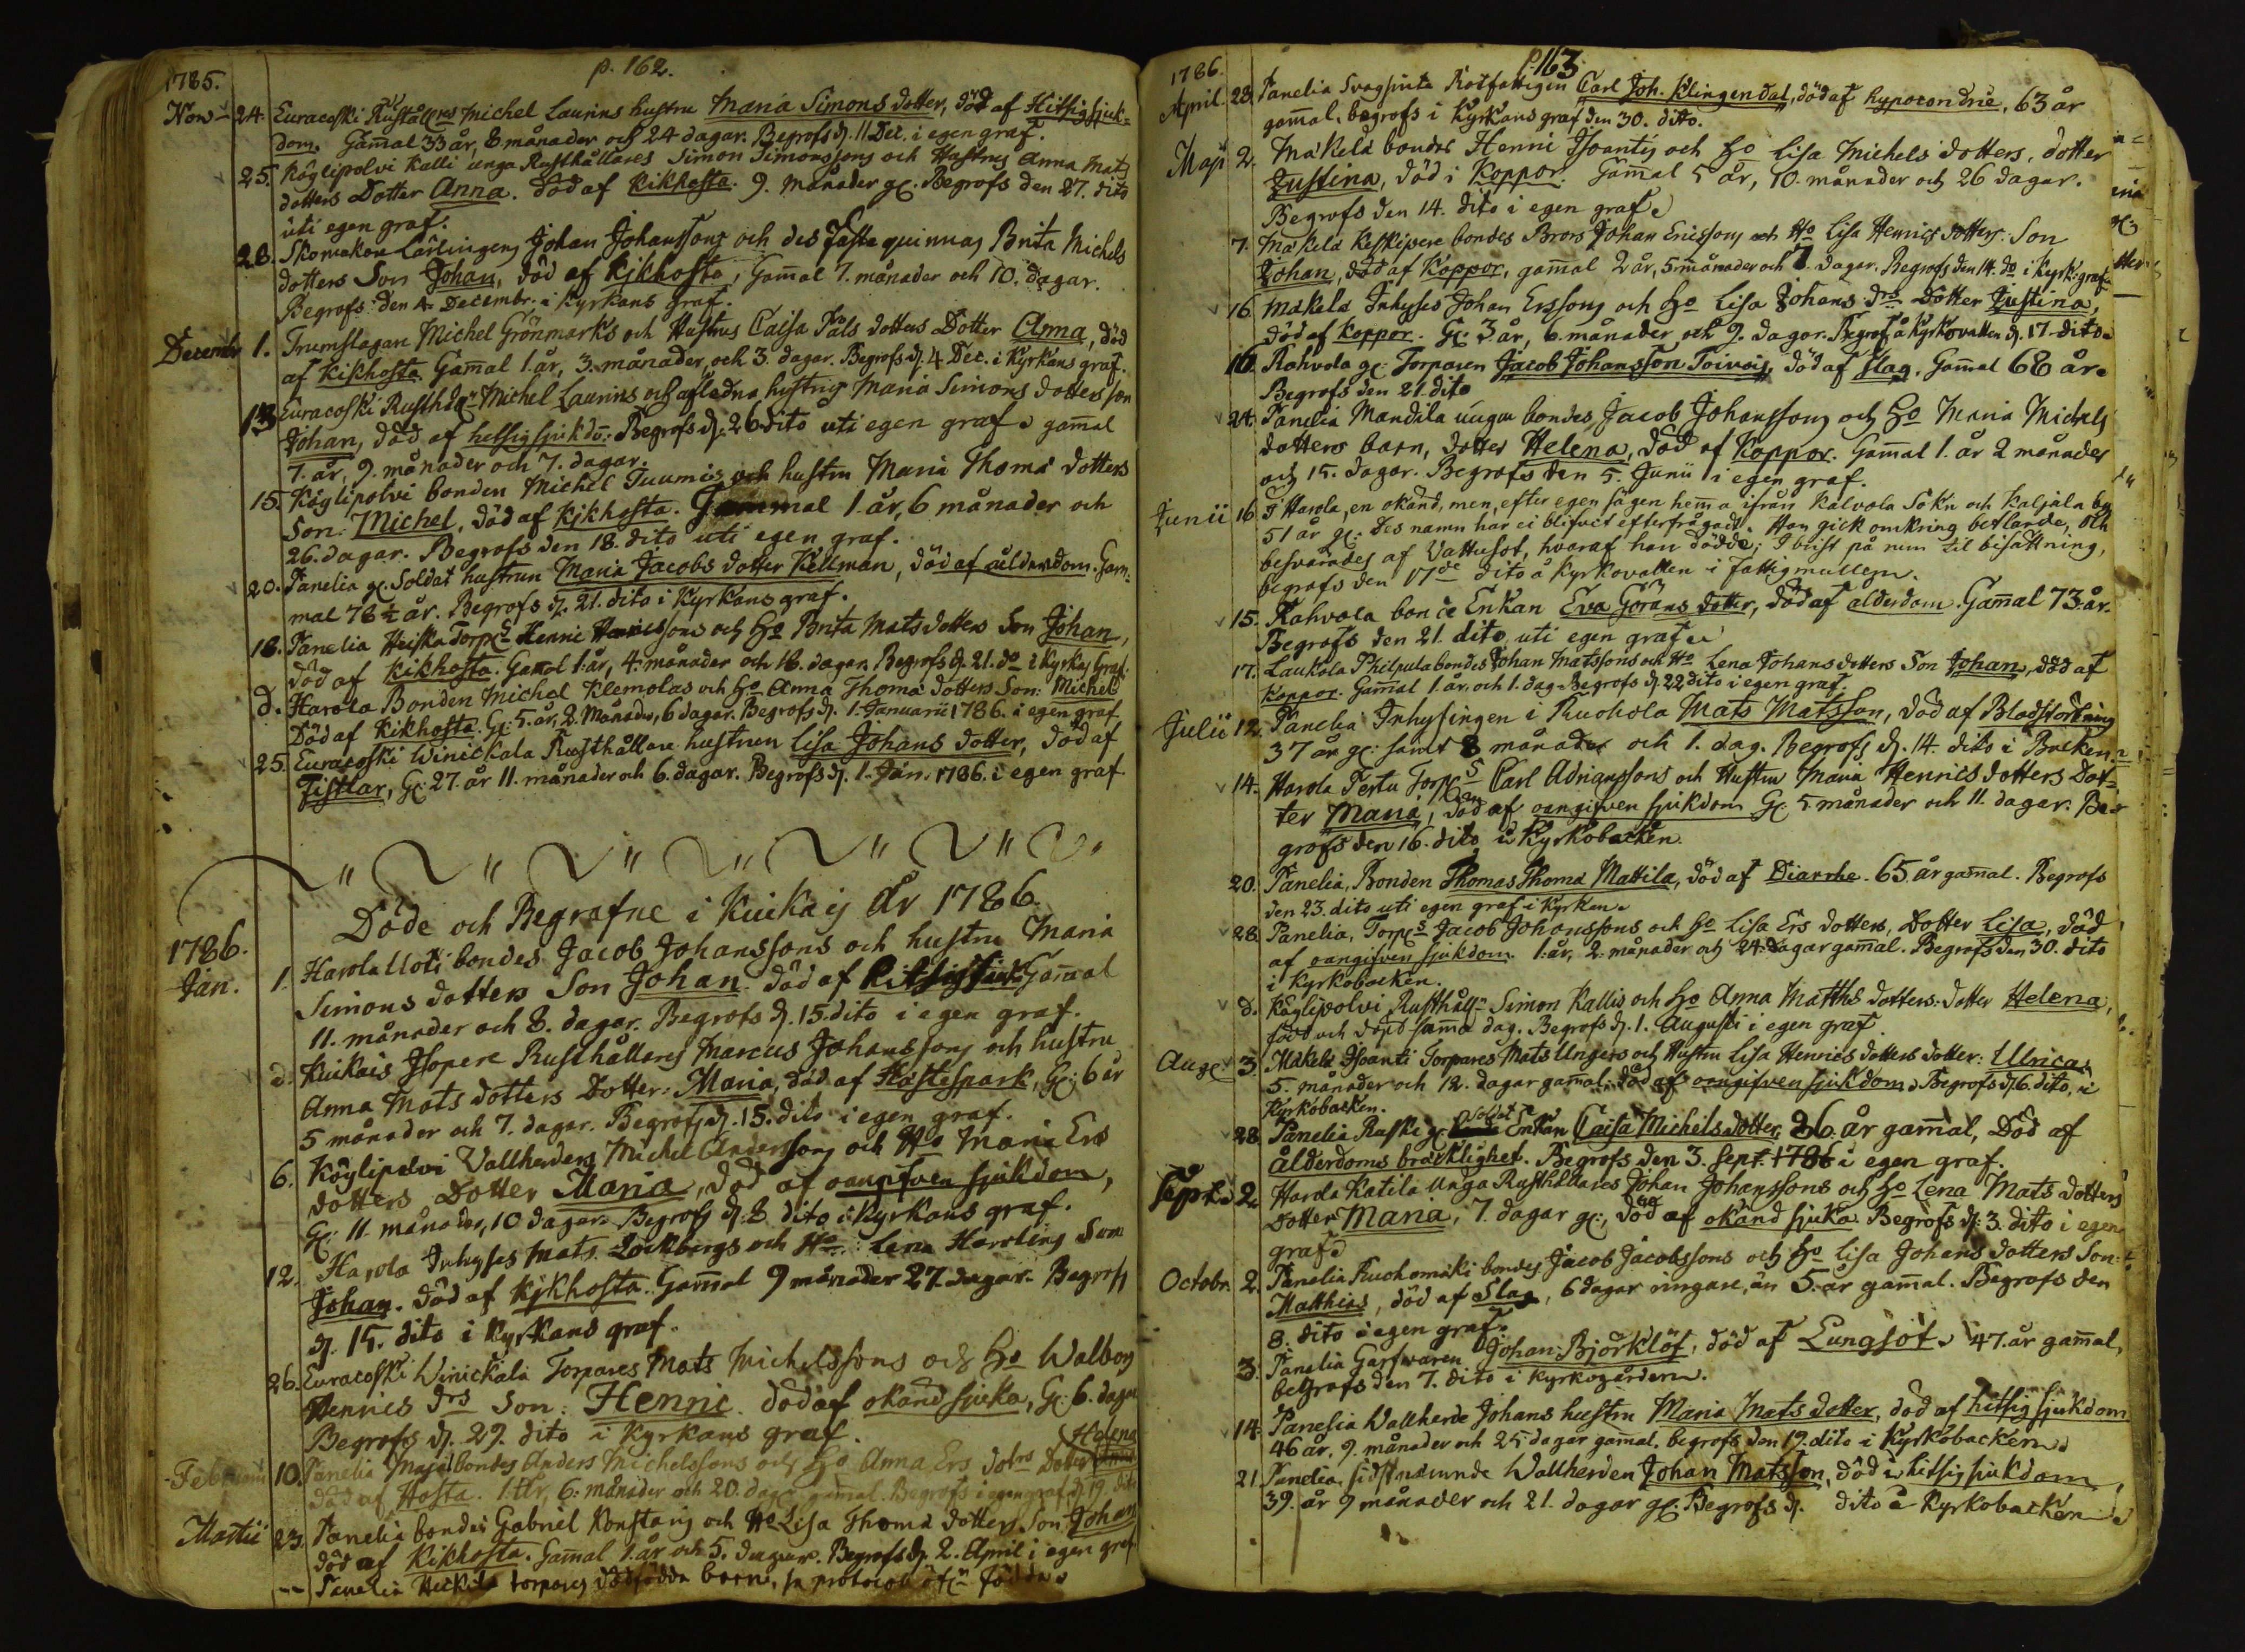 p. 162.
1785.
Nov. 24. Euracoski Rusthållrs Michel Laurins hustru Maria Simons dotter, död af Hitsig sjuk=
dom. Gam̄al 33 år, 8 månader och 24 dagar. Begrofs d. 11 Dec. i egen graf.
25. Köglipolvi Kalli unga Rusthållares Simon Simonssons och Hustrus Anna Mats
dotters Dotter Anna. död af kikhosta. 9. månader g. Begrofs den 27. dito
uti egen graf.
28. Skomakare Lärlingens Johan Johanssons och des Fästequinnas Brita Michels
dotters Son Johan, död af kikhosta, Gam̄al 7. månader och 10. dagar.
Begrofs den 4. Decembr. i Kyrkans graf.
Decembr. 1. Trumslagar Michel Grönmarks och Hustrus Caisa Påls dotters Dotter Anna, död
af Kikhosta. Gam̄al 1. år, 3. månader, och 3. dagar. Begrofs d. 4 Dec. i Kyrkans graf.
13 Euracoski Rusthåll Michel Laurins och afledna hustrus Maria Simons dotters son
Johan, död af hetsig sjukdō: Begrofs d. 26 dito uti egen graf. gam̄al
7. år, 9. månader och 7. dagar.
15. Köglipolvi bonden Michel Tuumis och hustru Maria Thomä dotters
Son: Michel, död af Kikhosta. Gammal 1. år, 6 månader och
26. dagar. Begrofs den 18. dito uti egen graf.
20. Panelia g. Soldat hustrun Maria Jacobs dotter Kellman, död af ålderdom. Gam=
mal 78 ½ år. Begrofs d. 21. dito i Kyrkans graf.
18. Panelia Heiska Torps Henric Henricssons och Ho Brita Mats dotters Son Johan,
död af kikhosta. Gamal 1. år, 4. månader och 18. dagar. Begrofs d. 21. do i Kyrkas Graf.
d. Harola Bonden Michel Klemolas och Ho Anna Thomä dotters Son: Michel
Död af kikhosta. G: 5. år, 2. Månader, 6 dagar. Begrofs d. 1. Januarii 1786. i egen graf.
25. Euracoski Winickala Rusthållare hustrun Lisa Johans dotter, död af
Fistlar, G: 27. år 11. månader och 6. dagar. Begrofs d. 1. Jan. 1786. i egen graf
Döde och Begrafne i Kiukais År 1786.
1786.
Jan. 1. Harola Uoti bondes Jacob Johanssons och hustru Maria
Simons dotters Son Johan. död af Hitsig sjuk: Gam̄al
11. månader och 8. dagar. Begrofs d. 15. dito i egen graf.
d. Kiukais Isopere Rusthållares Marcus Johanssons och hustru
Anna Mats dotters Dotter: Maria, död af Hästespark, G: 6 år
5 månader och 7. dagar. Begrofs d. 15. dito i egen graf.
6. Köglipolvi Vallherdens Michel Anderssons och Ho Maria Ers
dotters Dotter Maria, död af oangifven sjukdom,
G: 11. månader, 10 dagar. Begrofs d. 8 dito i Kyrkans graf.
12. Harola Inhyses Mats Lockbergs och Ho Lena Son
Johan. död af kikhosta. Gam̄al 9 månader 27. dagar. Begrofs
d. 15. dito i Kyrkans graf.
26. Euracoski Winickala Torpares Mats Michelssons och Ho Walborg
Henrics drs Son: Henric. död af okänd sjuka, G: 6. dagar
Begrofs d. 29. dito i Kyrkans graf.
Helena
10. Panelia bondes Anders Michelssons och Ho Anna Ers dotrs Dotter
död af Hosta. 1. År, 6. månader och 20. dagr gam̄al. Begrofs i egen graf d. 19. dito
Martii 23. Panelia bondes Gabriel Konstans och Ho Lisa Thomä dotters Son Johan
död af Kikhosta. Gam̄al 1. år och 5. dagar. Begrofs d. 2. April i egen graf
-- Panelia Heickilä torpares dödfödda barn, protocoll födda
p. 163
1786.
April. 23. Panelia Rotfattigen Carl Joh. Klingendal, död af hypocondrie, 63 år
gam̄al, begrofs i Kyrkans graf den 30. dito.
Maji 2. Mäkelä bondes Henric Isoantis och Ho Lisa Michels dotters, dotter
Justina, död i Koppor. Gam̄al 5 år, 10. månader och 26 dagar.
Begrofs den 14. dito i egen graf.
7. Mäkelä Keskipere bondes Brors Johan Ericssons och Ho Lisa Henrics dotters: Son
Johan, död af Koppor, gam̄al 2 år, 5 månader och 7 dagar. Begrofs den 14. do i Kyrk: graf.
16. Mäkelä Inhyses Johan Erssons och Ho Lisa Johans drs Dotter Justina,
död af Koppor. G: 3 år, 6. månader och 9. dagar. Begrofs å Kyrkovallen d. 17. dito.
10. Rahvola g: Torparen Jacob Johansson Toivois, död af Slag. Gam̄al 68 år.
Begrofs den 21. dito
24. Panelia Mandila unga bondes Jacob Johanssons och Ho Maria Michels
dotters barn, dotter Helena, död af Koppor. Gam̄al 1. år 2 månader
och 15. dagar. Begrofs den 5. Junii i egen graf.
Junii 16 I Harola, en okänd, men, efter egen sägen hem̄a ifrån Kalvola Sokn och Kaljala by
51 år g: Des namn har ei blifvit efterfrågadt. Han gick omkring betlande, och
besvärades af Vattusot, hvaraf han dödde; I brist på rum til bisättning,
begrofs den 17de dito å Kyrkovallen i fattigmullen.
15. Rahvola bonde Enkan Eva Görans dotter, död af alderdom. Gam̄al 73. år.
Begrofs den 21. dito, uti egen graf.
17. Laukola Philpula bondes Johan Matssons och Ho Lena Johans dotters Son Johan, död af
Koppor. Gam̄al 1. år. och 1. dag. Begrofs d. 22 dito i egen graf.
Julii 12. Panelia Inhysingen i Ruohola Mats Matsson, död af Blodstörtning
37 år g: samt 8 månader och 1. dag. Begrofs d. 14. dito i Backen.
14. Harola Perttu Torps Carl Adrianssons och Hustru Maria Henrics dotters Dot=
ter Maria, död af oangifven sjukdom G. 5. månader och 11. dagar. Be=
grofs den 16. dito å Kyrkobacken.
20. Panelia, Bonden Thomas Thomä Mattila, död af Diarrhe. 65. år gam̄al. Begrofs
den 23. dito uti egen graf i Kyrkan.
28. Panelia, Torps Jacob Johanssons och Ho Lisa Ers dotters, Dotter Lisa, död
af oangifven sjukdom. 1. år, 2. månader och 24. dagar gam̄al. Begrofs den 30. dito
i Kyrkobacken.
d. Köglipolvi Rusthåll: Simon Kallis och Ho Anna Matths dotters: dotter Helena,
född och död sam̄a dag. Begrofs d. 1. Augusti i egen graf.
Aug. 3. Mäkelä Isoanti Torpares Mats Ungers och Hustru Lisa Henrics dotters dotter: Ulrica,
5. månader och 12. dagar gam̄al: död af oangifven sjukdom. Begrofs d. 6. dito, i
Kyrkobacken.
28 Panelia Raski g. Soldat Enkan Caisa Michels dotter, 86. år gam̄al, Död af
Ålderdoms bräcklighet. Begrofs den 3. Sept. 1786 i egen graf.
Septr. 2. Harola Katila Unga Rusthållares Johan Johanssons och Ho Lena Mats dotters
Dotter Maria, 7. dagar g:, död af okänd sjuka. Begrofs d: 3. dito i egen
graf.
Octobr. 2. Panelia bondes Jacob Jacobssons och Ho Lisa Johans dotters Son:
Matthias, död af Slag, 6 dagar ringare, än 5. år gam̄al. Begrofs den
8. dito i egen graf.
3. Panelia Garfwaren Johan Björklöf, död af Lungsot. 47. år gam̄al,
begrofs den 7. dito i Kyrkogården.
14. Panelia Wallherde Johans hustru Maria Mats dotter, död af hitsig sjukdom
46 år. 9. månader och 25 dagar gam̄al. begrofs den 19. dito i Kyrkobacken.
21. Panelia, sidstnämnde Wallherden Johan Matsson, död i hitsig sjukdom,
39. år 9 månader och 21. dagar g: Begrofs d. dito å Kyrkobacken.